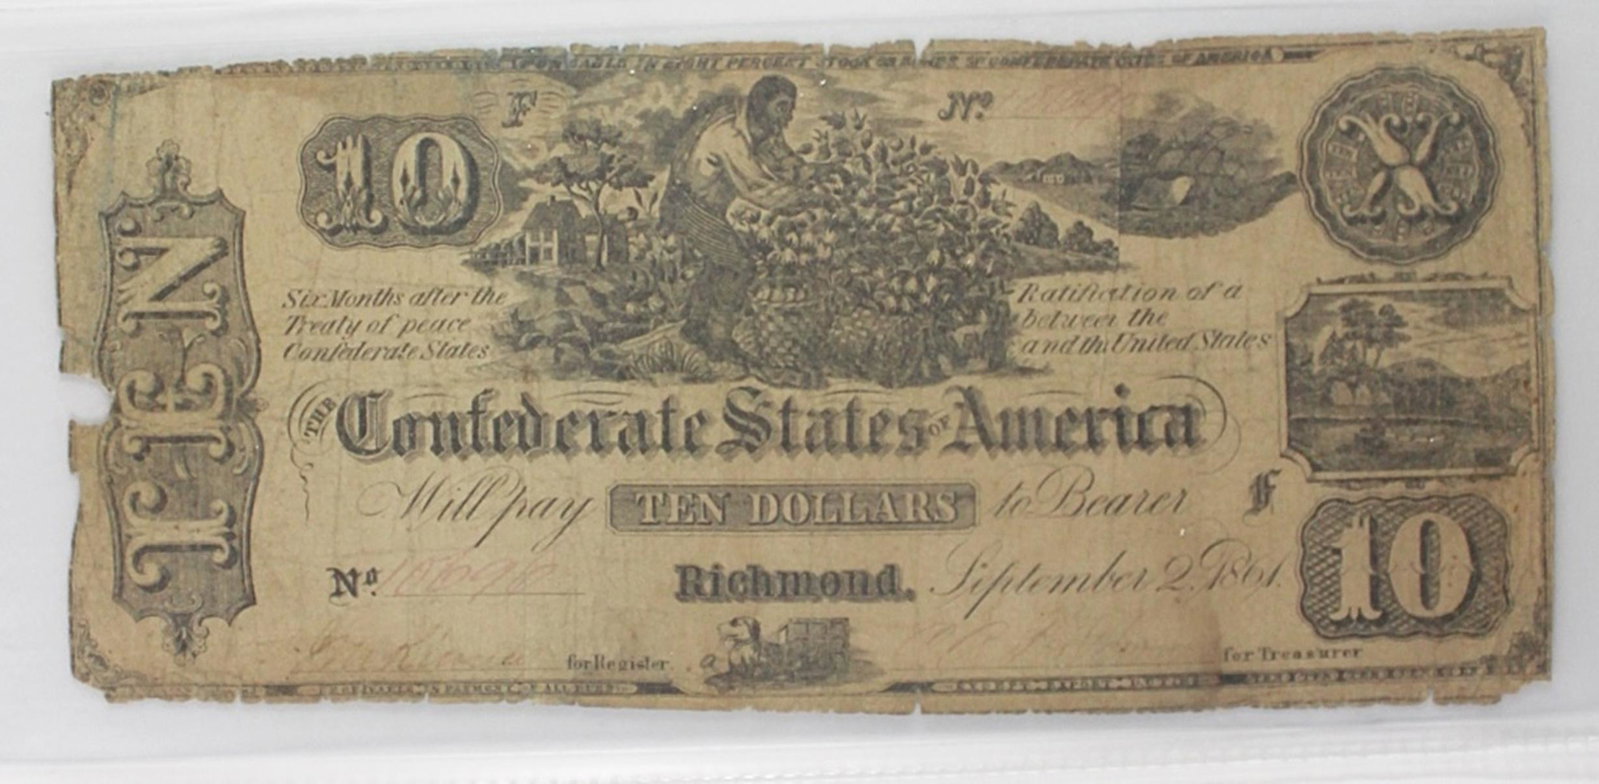 PERCENT STOCK OR BONDS OF CONFEDERATE STATES OF AMERICA
10 F Nº X
TEN
Six Months after the Ratification of a
Treaty of peace between the
Confederate States and the United States
THE Confederate States OF America
Will pay TEN DOLLARS to Bearer F
Nº Richmond, September 2, 1861. 10
for Register for Treasurer